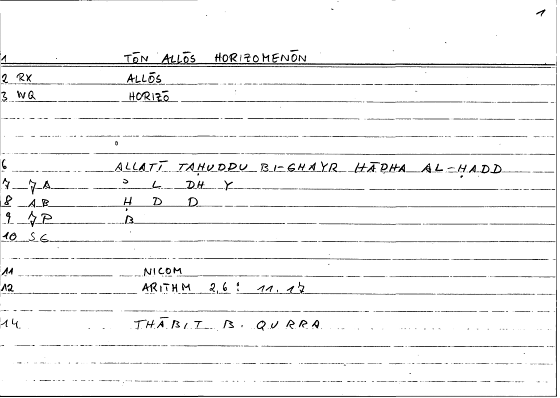 1
1 TŌN ALLŌS HORIZOMENŌN
2 RX ALLŌS
3 WQ HORIZŌ
6 ALLATĪ TAḤUDDU BI-GHAYR HĀDHA AL-ḤADD
7 ʾ L DH Y
8 AB Ḥ D D
9 B
10
11 NICOM
12 ARITHM 2,6: 11.17
14 THĀBIT B. QURRA